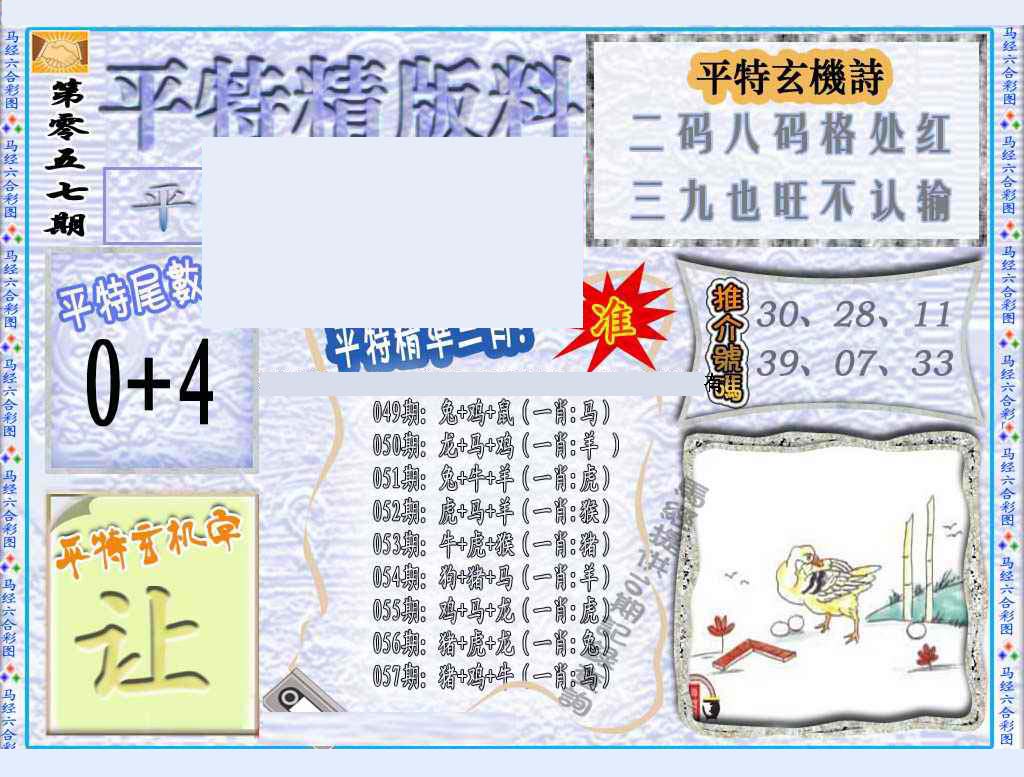 马经六合彩图
第零五七期
平特精版料
平
平特玄機詩
二码八码格处红
三九也旺不认输
平特尾數
0+4
平特精準一肖:
准
推介號碼
30、28、11
39、07、33
049期: 兔+鸡+鼠(一肖:马)
050期: 龙+马+鸡(一肖:羊 )
051期: 兔+牛+羊(一肖:虎)
052期: 虎+马+羊(一肖:猴)
053期: 牛+虎+猴(一肖:猪)
054期: 狗+猪+马(一肖:羊)
055期: 鸡+马+龙(一肖:虎)
056期: 猪+虎+龙(一肖:兔)
057期: 猪+鸡+牛(一肖:马)
平特玄机字
让